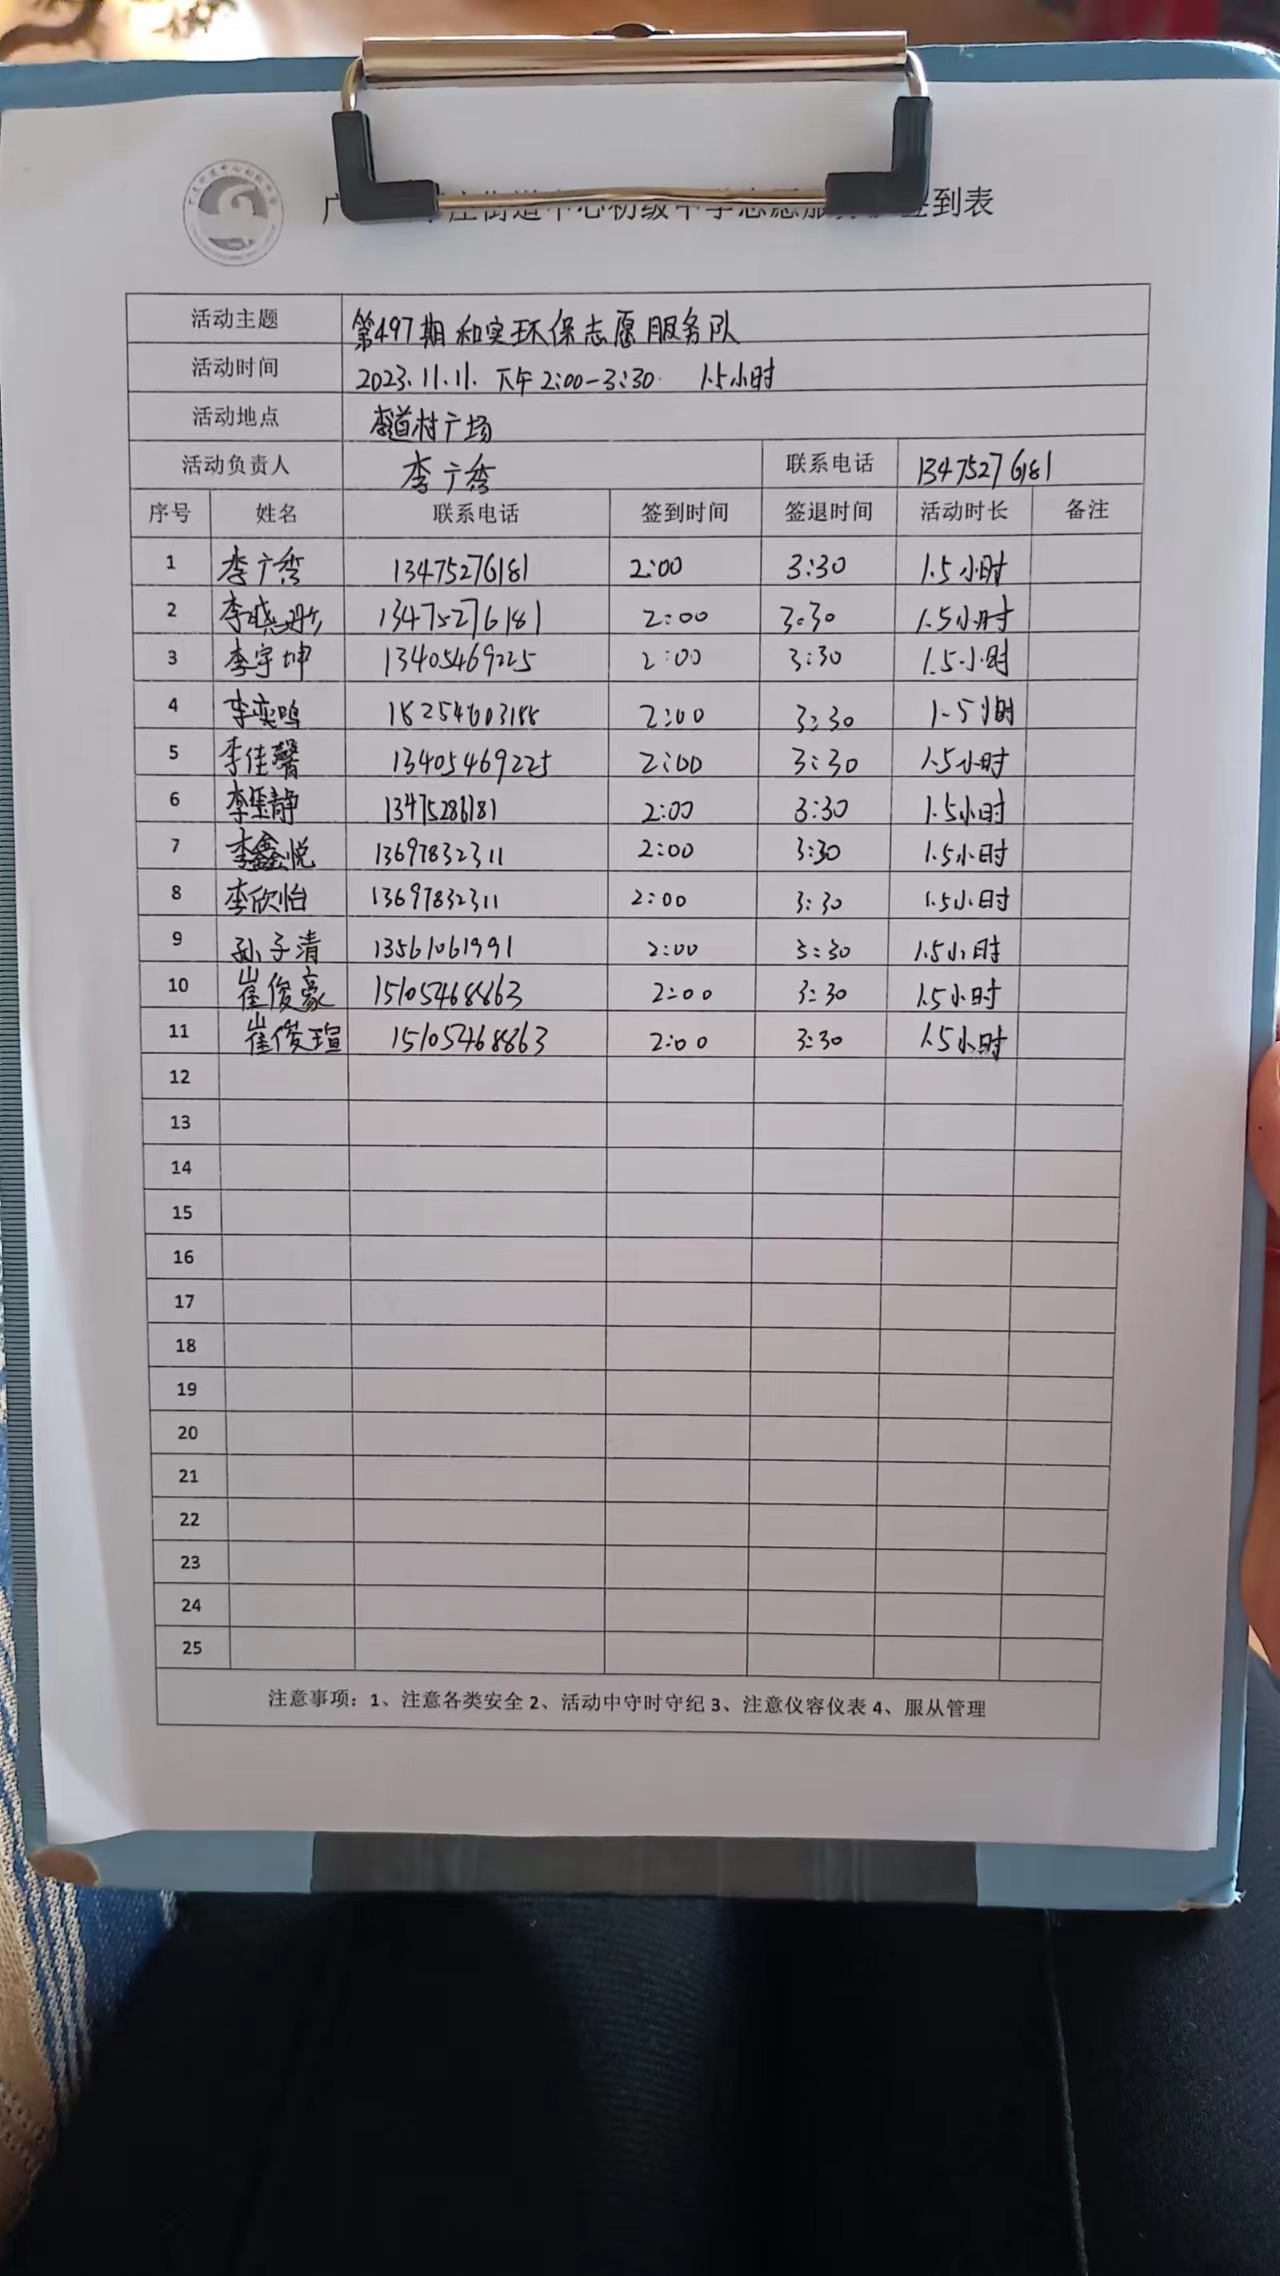 庄街道中心初级中学志愿服务 签到表
活动主题 第497期和实环保志愿服务队
活动时间 2023.11.11. 下午2:00-3:30. 1.5小时
活动地点 李道村广场
活动负责人 李广秀 联系电话 13475276181
序号 姓名 联系电话 签到时间 签退时间 活动时长 备注
1 李广秀 13475276181 2:00 3:30 1.5小时
2 李晓 13475276181 2:00 3:30 1.5小时
3 李宇坤 13405469225 2:00 3:30 1.5小时
4 李奕鸣 18254603188 2:00 3:30 1.5小时
5 李佳馨 13405469225 2:00 3:30 1.5小时
6 李玉静 13475286181 2:00 3:30 1.5小时
7 李鑫悦 13697832311 2:00 3:30 1.5小时
8 李欣怡 13697832311 2:00 3:30 1.5小时
9 孙子清 13561061991 2:00 3:30 1.5小时
10 崔俊豪 15105468863 2:00 3:30 1.5小时
11 崔俊瑄 15105468863 2:00 3:30 1.5小时
12
13
14
15
16
17
18
19
20
21
22
23
24
25
注意事项：1、注意各类安全 2、活动中守时守纪 3、注意仪容仪表 4、服从管理